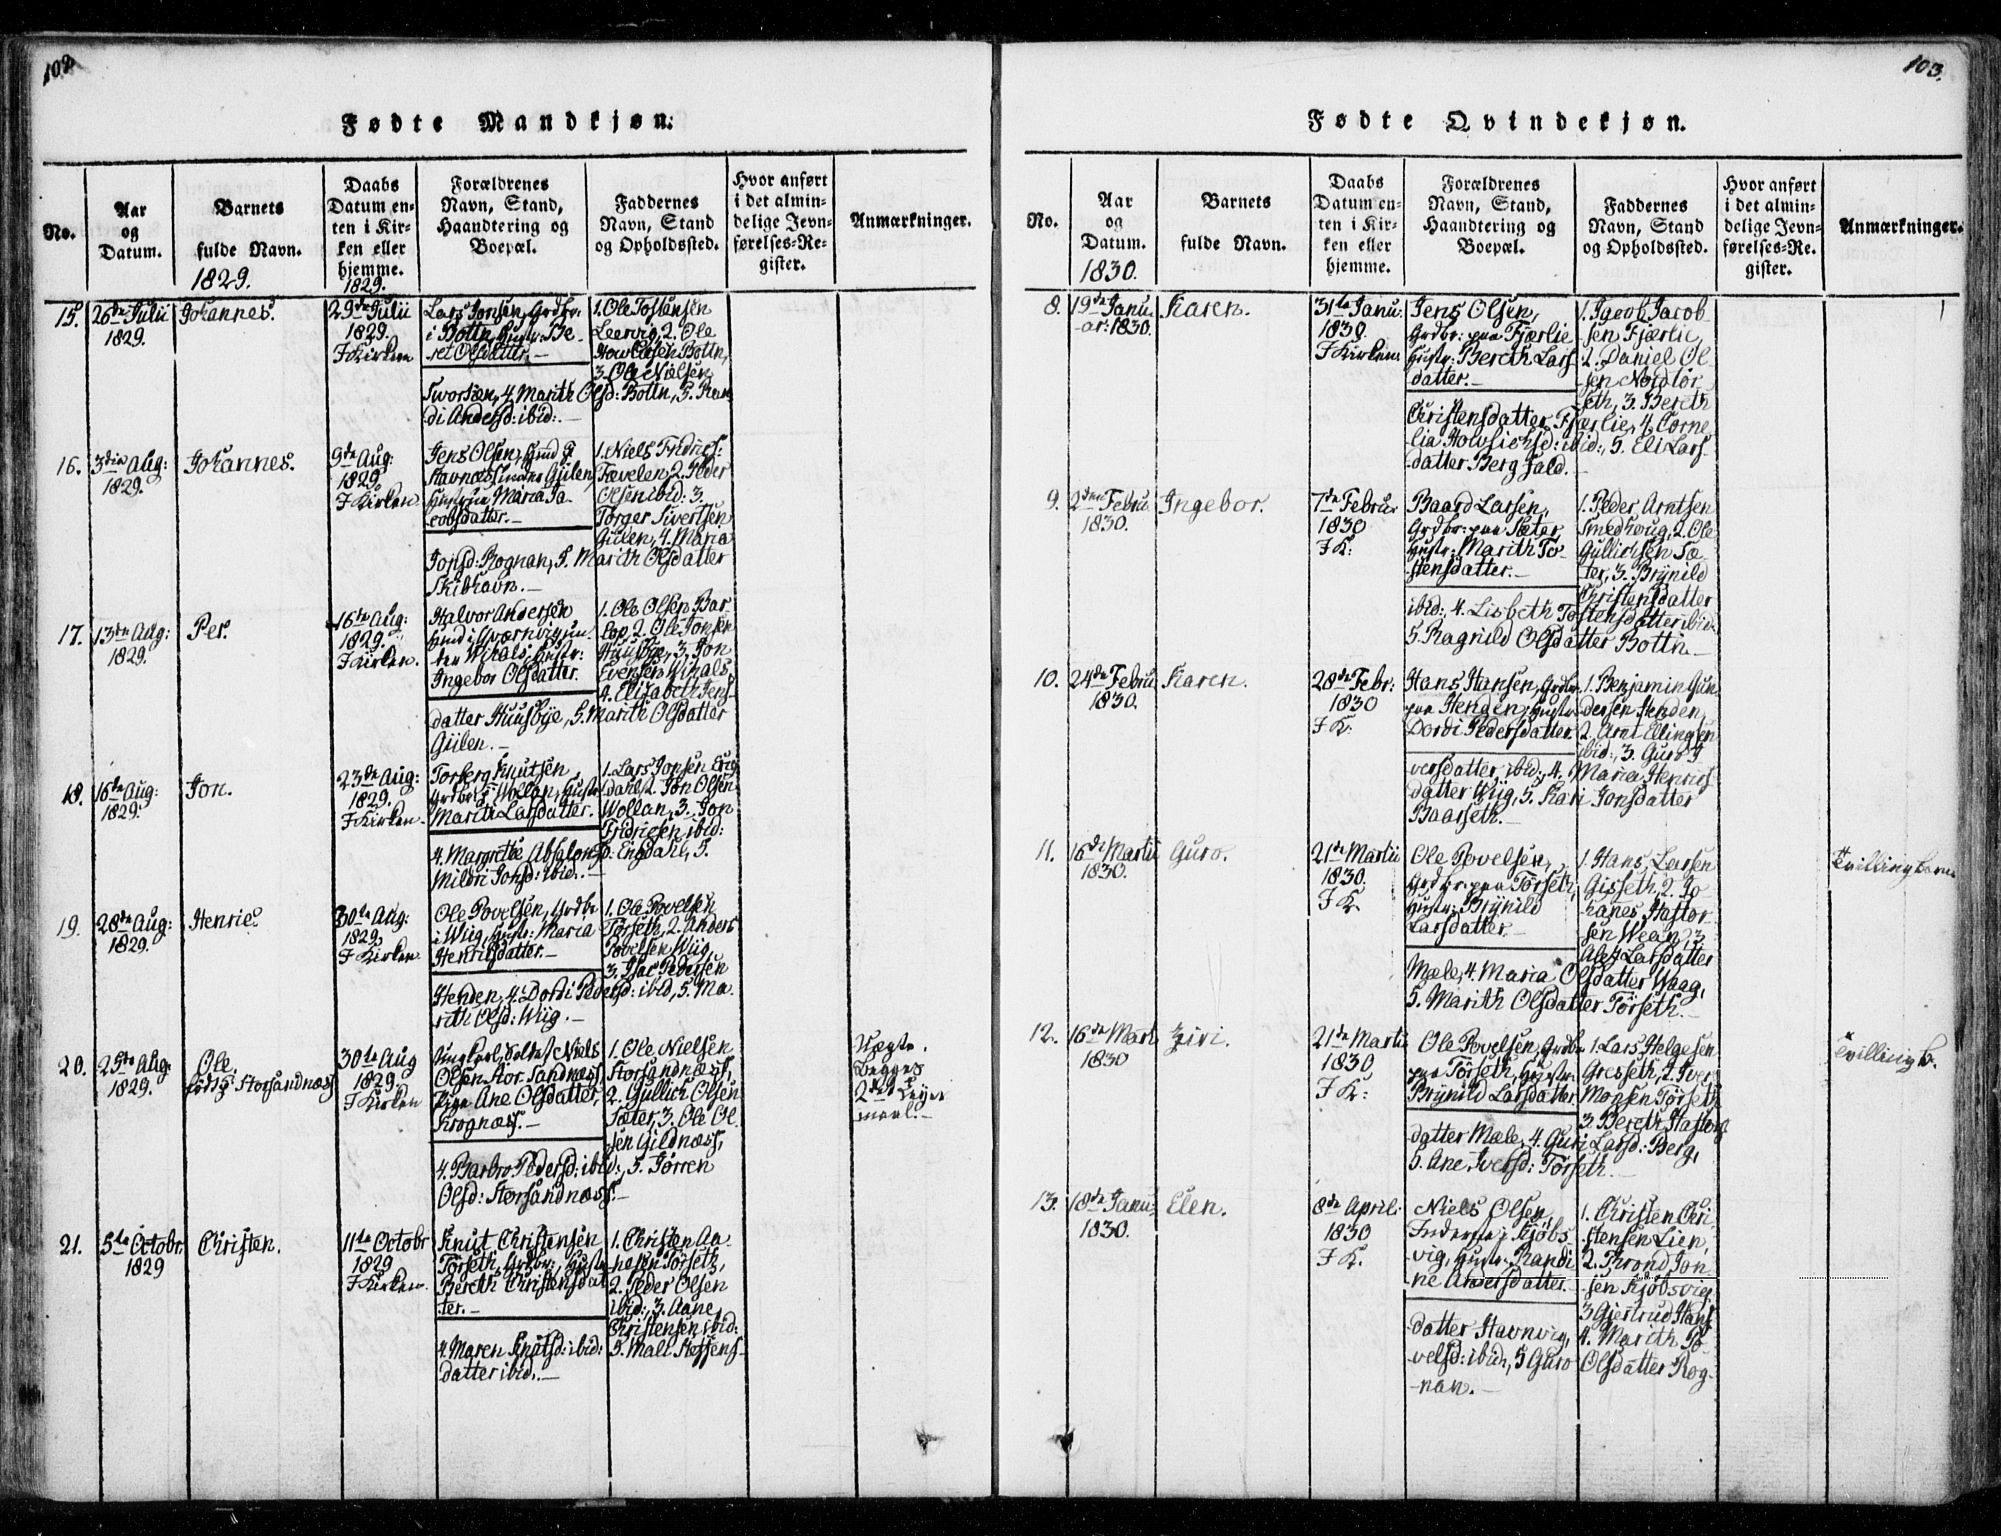 102
Fødte Mandkjøn.
No.
Aar
og
Datum.
Barnets
fulde Navn.
1829.
Daabs
Datum en-
ten i Kir-
ken eller
hjemme.
1829.
Forældrenes
Navn, Stand,
Haandtering og
Boepæl.
Faddernes
Navn, Stand
og Opholdssted.
Hvor anført
i det almin-
delige Jevn-
førelses-Re-
gister.
Anmærkninger.
15.
26de Julii
1829.
Johannes.
29de Julii
1829.
I Kirken
Lars Jonsen, Grdbr:
i Bottn, Hustr: Be-
ret Olsdatter.
1. Ole Tostensen
Leervig, 2. Ole
Bottn,
3. Ole Nielsen
4. Marith Olsd: Bottn, 5. Ran
di Andersd: ibid:
16.
3die Aug:
1829.
Johannes.
9de Aug:
1829
I Kirken.
Jens Olsen,
Gülen,
Hustrue Maria Ja-
cobsdatter.
1. Niels Fridrics:
Fævelen, 2. Peder
Olsen ibid: 3.
Torger Sivertsen
Gülen, 4. Maria
Jonsd: Rognan, 5. Marith Olsdatter
Skibhavn.
17.
13de Aug:
1829.
Per.
16de Aug:
1829.
I Kirken.
Halvor Andersen
un-
der Wihals, Hustr:
Ingebor Olsdatter.
1. Ole Olsen Bar-
lop, 2. Ole Jonsen
Huusbye, 3. Jon
Evensen Wihals,
4. Elisabeth Jens-
datter Huusbye, 5. Marith Olsdatter
Gülen.
18.
16de Aug:
1829.
Jon.
23de Aug:
1829.
I Kirken.
Torberg Knutsen
Grdbr: Wollan, Hustr:
Marith Larsdatter.
1. Lars Jonsen Eng
dahl, 2. Jon Olsen
Wollan, 3. Jon
Fridricsen ibid:
4. Margrethe Absalonsd: Engdahl, 5.
Mildri Johsd: ibid:
19.
28de Aug:
1829.
Henric
30te Aug:
1829.
I Kirken
Ole Povelsen, Grdbr
i Wiig, Hustr: Maria
Henricsdatter.
1. Ole Povelsen
Torseth, 2. Anders
Povelsen Wiig,
3. Isac Pedersen
Henden, 4. Dordi Pedersd: ibid, 5. Ma-
rith Olsd: Wiig.
20.
25de Aug:
1829.
Ole.
Storsandnæss
30te Aug
1829
I Kirken
Ungkarl, Soldat Niels
Olsen Stor-Sandnæss,
Pige Ane Olsdatter,
Krognæss.
1. Ole Nielsen
Storsandnæss,
2. Gullich Olsen
Sæter, 3. Ole Ol-
sen Gildnæss,
4. Barbro Pedersd: ibid:, 5. Jørren
Olsd: Storsandnæss.
Uægte.
Begges
2det Leyer
maal.
21.
5te Octobr.
1829
Christen.
11te Octobr
1829
I Kirken.
Knut Christensen
Torseth, Grdbr:, Hustr
Bereth Christensdat
ter.
1. Christen Aa-
nesen Torseth,
2. Peder Olsen
ibid:, 3. Aane
Christensen ibid:
4. Maren Knutsd: ibid: 5. Mali Steffens-
datter ibid.
103.
Fødte Qvindekjøn.
No.
Aar
og
Datum.
1830.
Barnets
fulde Navn.
Daabs
Datum en-
ten i Kir-
ken eller
hjemme.
Forældrenes
Navn, Stand,
Haandtering og
Boepæl.
Faddernes
Navn, Stand
og Opholdssted.
Hvor anført
i det almin-
delige Jevn-
førelses-Re-
gister.
Anmærkninger.
8.
19de Janu-
ar: 1830.
Karen.
31te Janu:
1830
I Kirken
Jens Olsen,
Grdbr: paa Fjærlie
Hustr: Bereth Lars
datter.
1. Jacob Jacob-
sen Fjærlie,
2. Daniel Ol-
sen Nordtør-
seth, 3. Bereth
Christensdatter Fjærlie, 4. Corne-
lia ibid:, 5. Eli Lars-
datter Berg
9.
2den Febru.
1830.
Ingebor.
7de Febru.
1830
I K:
Baard Larsen,
Grdbr: paa Sæter,
Hustr: Marith To-
stensdatter.
1. Peder Arntsen
Smedhoug, 2. Ole
Gullichsen Sæ-
ter, 3. Brynild
Christensdatter
ibid:, 4. Lisbeth Tostensdatter ibid:
5. Ragnild Olsdatter Bottn.
10.
24de Febru
1830.
Karen.
28de Febr:
1830
I K:
Hans Hansen, Grdbr
paa Henden, Hustr
Dordi Pedersdatter.
1. Benjamin Gun-
dersen Henden,
2. Arnt Ellingsen
ibid:, 3. Guro I
versdatter, ibid:, 4. Maria Henrics
datter Wiig, 5. Kari Jonsdatter
Baasseth.
11.
16de Martii
1830.
Guro.
21de Martii
1830.
I K.
Ole Povelsen,
Grdbr: paa Torseth,
Hustr: Brynild
Larsdatter.
1. Hans Larsen
Gisseth, 2. Jo-
hanes Hastor-
sen Wean, 3.
Ales Larsdatter
Mæle, 4. Maria Olsdatter Waag,
5. Marith Olsdatter Torseth.
Tvillingbørn
12.
16de Mart
1830
Ziri.
21de Martii
1830,
I K:
Ole Povelsen, Grdbr
paa Torseth, Hustr:
Brynild Larsdatter.
1. Lars Helgesen
Gresseth, 2. Iver
Monsen Torseth
3. Bereth Hastors
datter Mæle, 4. Guri Larsd: Berg,
5. Ane Iversd: Torseth.
Tvilling b.
13.
18de Janu:
1830.
Elen.
8de April:
1830
I K.
Niels Olsen,
Inderste i Kjøbs-
vig, Hustr: Randi
ne Andersdatter.
1. Christen Chri-
stensen Lien,
2. Trond Jon-
sen Kjøbsvig,
3. Gjertrud Hans
datter Havnvig, 4. Marith Po-
velsd: ibid, 5 Guro Olsdatter Rog-
nan.